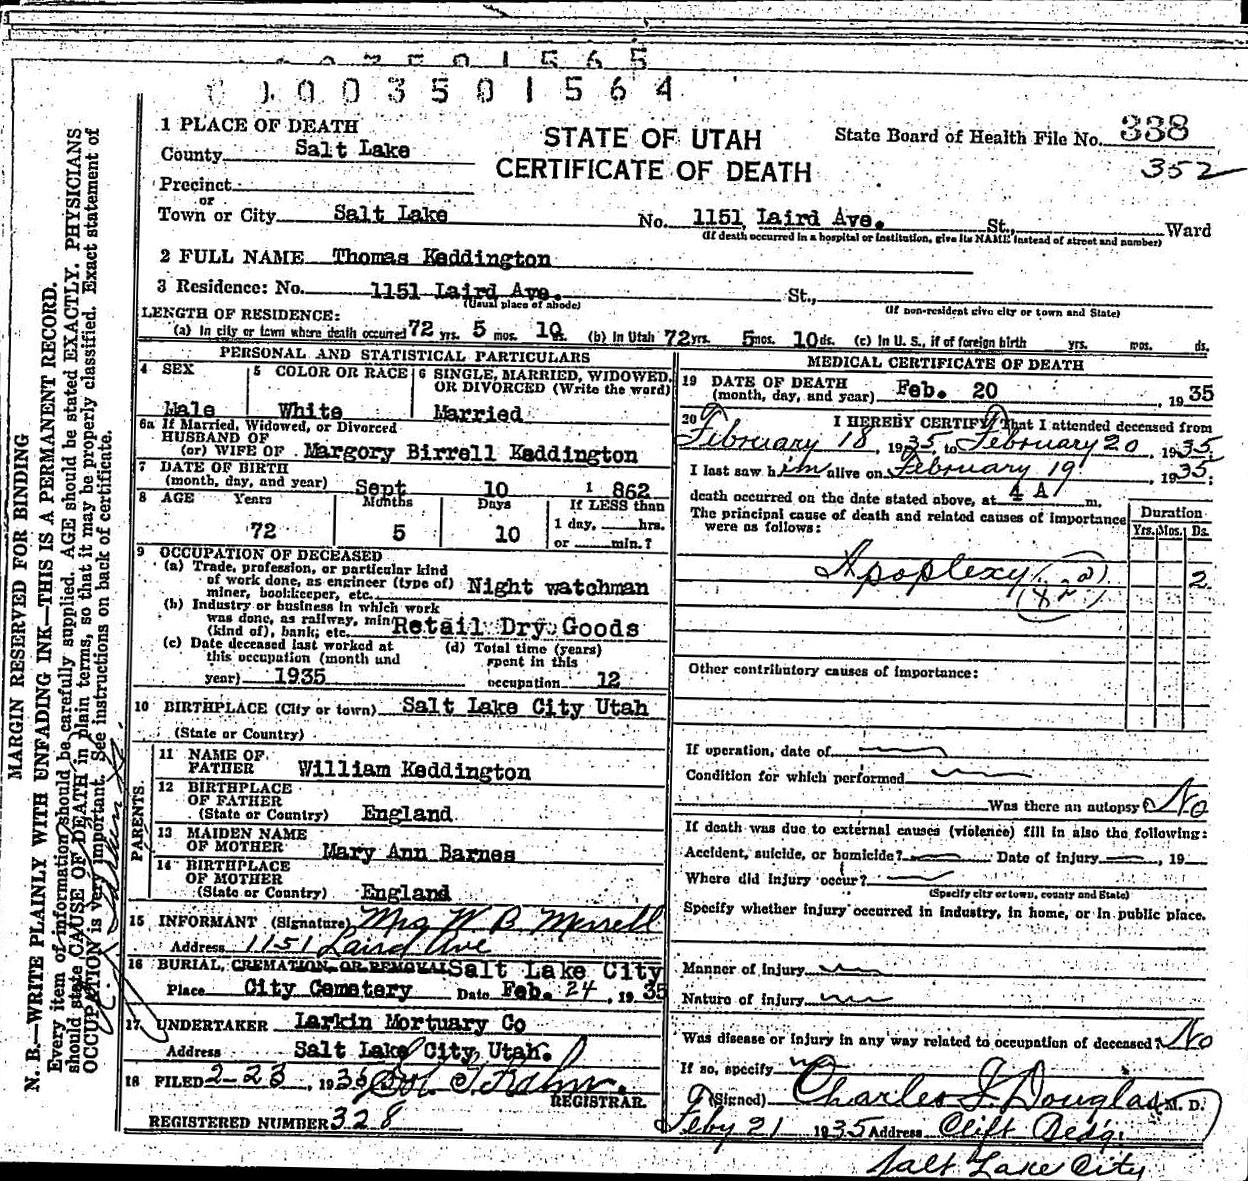 0003501564
1 PLACE OF DEATH
County Salt Lake
STATE OF UTAH
CERTIFICATE OF DEATH
State Board of Health File No. 338
352
Precinct
or
Town or City Salt Lake No. 1151 Laird Ave. St., Ward
(If death occurred in a hospital or institution, give its NAME instead of street and number)
2 FULL NAME Thomas Keddington
3 Residence: No. 1151 Laird Ave. St.,
(Usual place of abode) (If non-resident give city or town and State)
LENGTH OF RESIDENCE:
(a) In city or town where death occurred 72 yrs. 5 mos. 10 ds. (b) In Utah 72 yrs. 5 mos. 10 ds. (c) In U. S., if of foreign birth yrs. mos. ds.
PERSONAL AND STATISTICAL PARTICULARS
4 SEX
Male
5 COLOR OR RACE
White
6 SINGLE, MARRIED, WIDOWED,
OR DIVORCED (Write the word)
Married
6a If Married, Widowed, or Divorced
HUSBAND OF
(or) WIFE OF Margory Birrell Keddington
7 DATE OF BIRTH
(month, day, and year) Sept 10 1862
8 AGE Years Months Days If LESS than
72 5 10
1 day, hrs.
or min.?
9 OCCUPATION OF DECEASED
(a) Trade, profession, or particular kind
of work done, as engineer (type of)
miner, bookkeeper, etc. Night watchman
(b) Industry or business in which work
was done, as railway, mine
(kind of), bank, etc. Retail Dry Goods
(c) Date deceased last worked at
this occupation (month and
year) 1935
(d) Total time (years)
spent in this
occupation 12
10 BIRTHPLACE (City or town) Salt Lake City Utah
(State or Country)
PARENTS
11 NAME OF
FATHER William Keddington
12 BIRTHPLACE
OF FATHER
(State or Country) England
13 MAIDEN NAME
OF MOTHER Mary Ann Barnes
14 BIRTHPLACE
OF MOTHER
(State or Country) England
15 INFORMANT (Signature) Mrs W B Merrell
Address 1151 Laird Ave
16 BURIAL, CREMATION, OR REMOVAL Salt Lake City
Place City Cemetery Date Feb. 24, 1935
17 UNDERTAKER Larkin Mortuary Co
Address Salt Lake City Utah.
18 FILED 2-23, 1935
REGISTRAR.
REGISTERED NUMBER 328
MEDICAL CERTIFICATE OF DEATH
19 DATE OF DEATH
(month, day, and year) Feb. 20 1935
20 I HEREBY CERTIFY, That I attended deceased from
February 18, 1935, to February 20, 1935.
I last saw him alive on February 19, 1935;
death occurred on the date stated above, at 4 A m.
The principal cause of death and related causes of importance
were as follows:
Duration
Yrs. Mos. Ds.
Apoplexy 2
Other contributory causes of importance:
If operation, date of
Condition for which performed
Was there an autopsy? No
If death was due to external causes (violence) fill in also the following:
Accident, suicide, or homicide? Date of injury , 19
Where did injury occur?
(Specify city or town, county and State)
Specify whether injury occurred in industry, in home, or in public place.
Manner of injury
Nature of injury
Was disease or injury in any way related to occupation of deceased? No
If so, specify
(Signed) Charles J. Douglas M. D.
Feby 21 1935 Address Clift Bldg.
Salt Lake City
MARGIN RESERVED FOR BINDING
N. B.—WRITE PLAINLY WITH UNFADING INK—THIS IS A PERMANENT RECORD.
Every item of information should be carefully supplied. AGE should be stated EXACTLY. PHYSICIANS
should state CAUSE OF DEATH in plain terms, so that it may be properly classified. Exact statement of
OCCUPATION is very important. See instructions on back of certificate.